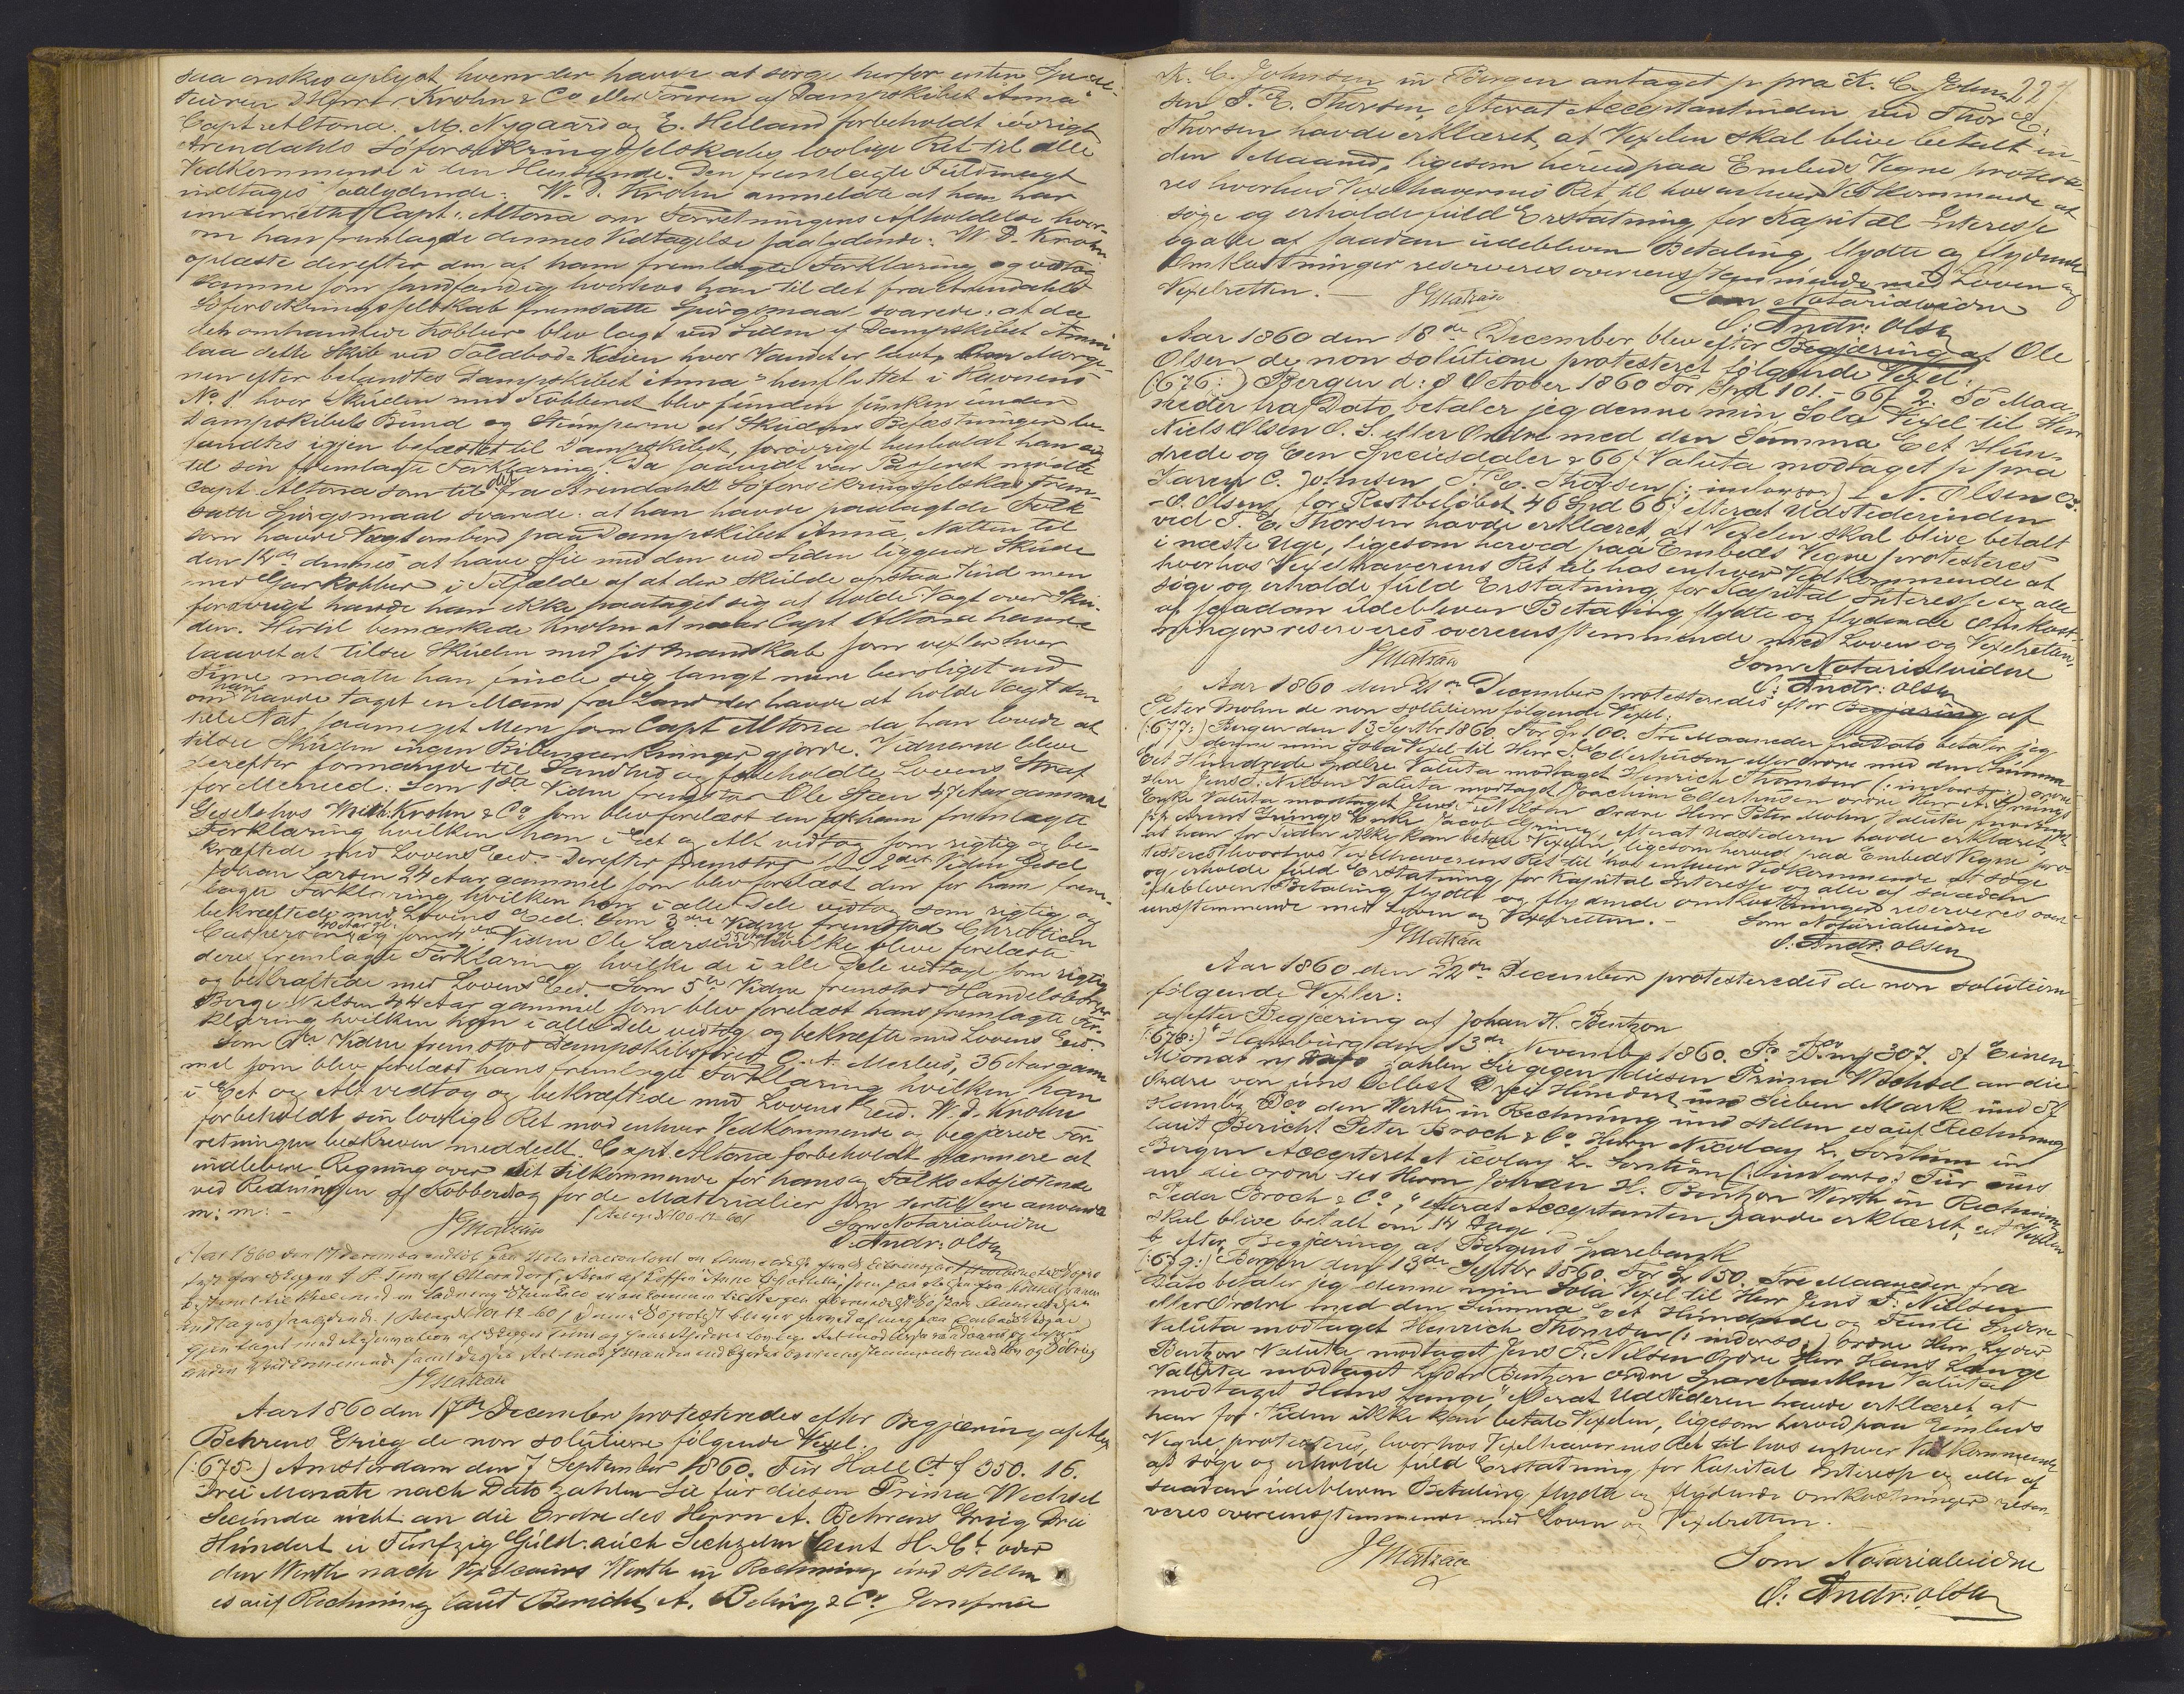 saa ønskes oplyst hvem der havde at sørge herfor enten Specditeuren
D'Herrer Krohn & Co eller Føreren af Dampskibet Anna
Capt. Altona. M. Nygaard og E. Helland forbeholdt iøvrigt
Arendahls Søforsikringsselskabs lovlige Ret til alle
Vedkommende i den Henseende. Den fremlagte Fuldmagt
indtages saalydende: W. D. Krohn anmeldte at han har
underrettet Capt. Altona om Forretningens Afholdelse hvorom
han fremlagde dennes Vedtagelse saalydende: W. D. Krohn
oplæste derefter den af ham fremlagte Forklaring og vedtog
samme som sandfærdig hvorhos han til det fra Arendahls
Søforsikringsselskab fremsatte Spørgsmaal svarede: at da
det omhandlede Kobber blev lagt ved Siden af Dampskibet Anna
laa dette Skib ved Toldbod-Kaien hvor Vandet er lavt, Om Morgenen
efter befandtes Dampskibet "Anna" henflyttet i Havnens
No 1 hvor Skuden med Kobberet blev funden sunken under
Dampskibets Bund og Stumperne af Skudens Befæstninger befandtes
igjen befæstet til Dampskibet, forøvrigt henholdt han sig
til sin fremlagte Forklaring. Da saavidt var Passeret mødte
Capt. Altona som til det fra Arendahls Søforsikringsselskab fremsatte
Spørgsmaal svarede: at han havde paalagt de Folk
som havde Vagt ombord paa Dampskibet Anna, Natten til
den 14de dennes at have Øie med den ved Siden liggende Skude
med Garkobber i Tilfælde af at der skulde opstaa Vind men
forøvrigt havde han ikke paataget sig at holde Vagt over Skuden.
Hertil bemærkede Krohn at naar Capt Altona havde
laavet at tilsee Skuden med sit Mandskab som vexler hver
Time maatte han finde sig langt mere beroliget end
om han havde taget en Mand fra Land der havde at holde Vagt den
hele Nat saameget Mere som Capt Altona da han lovede at
tilsee Skuden ingen Bibemærkninger gjorde. Vidnerne bleve
derefter formanede til Sandhed og foreholdte Lovens Straf
for Meneed. Som 1ste Vidne fremstod Ole Steen 47 Aar gammel
Gesel hos Wilh. Krohn & Co som blev forelæst den for ham fremlagte
Forklaring hvilken han i Eet og Alt vedtog som rigtig og bekræftede
med Lovens Eed. Derefter fremstod som 2det Vidne Gesel
Johan Larsen 24 Aar gammel som blev forelæst den for ham fremlagte
Forklaring hvilken han i alle Dele vedtog som rigtig og
bekræftede med Lovens Eed. Som 3die Vidne fremstod Christian
Caspersen 40 Aar gl. og som 4de Vidne Ole Larsen 55 Aar gl. hvilke bleve forelæste
deres fremlagte Forklaring hvilke de i alle Dele vedtoge som rigtig
og bekræftede med Lovens Eed. Som 5te Vidne fremstod Handelsborger
Børge Nilsen 44 Aar gammel som blev forelæst hans fremlagte Forklaring
hvilken han i alle Dele vedtog og bekræfte med Lovens Eed.
Som 6te Vidne fremstod Dampskibsfører O. A. Meslus, 36 Aar gammel
som blev forelæst hans fremlagte Forklaring hvilken han
i Eet og Alt vedtog og bekræftede med Lovens Eed. W. D. Krohn
forbeholdt sin lovlige Ret mod enhver Vedkommende og begjærede Forretningen
beskreven meddeelt. Capt Altona forbeholdt nærmere at
indlevere Regning over det Tilkommende for hans og Folks Assistence
ved Redningen af Kobberet og for de Materialier som dertil ere anvendte
m: m:
J Matzau
Som Notarialvidne
O. Andr: Olsen
Aar 1860 den 17 December
J Matzau
Aar 1860 den 17de December protesteredes efter Begjæring af Alex
Behrens Grieg de non solutione følgende Vexel:
(:675:) Amsterdam den 7 September 1860. Für Holl Ct f 350. 16.
Drei Monate nach Dato zahlen Sie für diesen Prima Wechsel
Secunda nicht an die Ordre des Herrn A. Behrens Grieg Drei
Hundert u Fünfzig Guld. auch Sechzehn Cent H. Ct. oder
den Werth nach Vexelcours Werth in Rechnung und stellen
es auf Rechnung laut Bericht, A. Behrig & Co Jomfrue
227.
K. C. Johnsen in Bergen antaget pr pra K. C. Johnsen
T. E. Thorsen, efterat Acceptantinden ved Thor E.
Thorsen havde erklæret, at Vexelen skal blive betalt inden
1 Maaned, ligesom herved paa Embeds Vegne protesteres
hvorhos Vexelhaverens Ret til hos enhver Vedkommende at
søge og erholde fuld Erstatning for Kapital Interesse
og alle af saadan udebleven Betaling flydte og flydende
Omkostninger reserveres overensstemmende med Loven og
Vexelretten.
J Matzau
Som Notarialvidne
O: Andr: Olsen
Aar 1860 den 18de December blev efter Begjæring af Ole
Olsen de non solutione protesteret følgende Vexel:
(:676:) Bergen d: 8 October 1860 For Spd 101. - 66 ß 2. To Maaneder
fra Dato, betaler jeg denne min Sola Vexel til Herr
Niels Olsen O. S. eller Ordre med den Summa Eet Hundrede
og Een Speciesdaler & 66 ß Valuta modtaget pr pra
Karen C. Johnsen T. E. Thorsen (: indorso:) - N. Olsen OS.
- O. Olsen, for Restbeløbet 46 Spd 66 ß efterat Udstederinden
ved T. E. Thorsen havde erklæret, at Vexelen skal blive betalt
i næste Uge, ligesom herved paa Embeds Vegne protesteres
hvorhos Vexelhaverens Ret til hos enhver Vedkommende at
søge og erholde fuld Erstatning for Kapital Interesse og alle
af saadan udebleven Betaling flydte og flydende Omkostninger
reserveres overensstemmende med Loven og Vexelretten.
J Matzau
Som Notarialvidne
O: Andr: Olsen
Aar 1860 den 21de December protesteredes efter Begjæring af
Peter Mohn de non solutione følgende Vexel:
(:677:) Bergen den 13 Septbr 1860. For Sp 100. Tre Maaneder fra Dato betaler jeg
denne min Sola Vexel til Herr J. Ellerhusen eller Ordre med den Summa
Eet Hundrede Spdlre Valuta modtaget Henrich Thomsen (: indorso:) ordre
Herr Jens F. Nilsen Valuta modtaget Joachim Ellerhusen ordre Herr A. Grunigs
Enke Valuta modtaget Jens F. Nilsen Ordre Herr Peter Mohn Valuta modtaget
Enke Jacob efterat Udstederen havde erklæret
at han for Tiden ikke kan betale Vexelen, ligesom herved paa Embeds Vegne protesteres
hvorhos Vexelhaverens Ret til hos enhver Vedkommende at søge
og erholde fuld Erstatning for Kapital Interesse og alle af saadan
udebleven Betaling flydte og flydende Omkostninger reserveres overensstemmende
med Loven og Vexelretten.
J Matzau
Som Notarialvidne
O. Andr: Olsen
Aar 1860 den 22de December protesteredes de non solutione
følgende Vexler:
a, efter Begjæring af Johan H. Bentzon
(:678:) "Hamburg den 13de November 1860. Pr Bco my 307. 8 ß Einen
Monat n/ Dato zahlen Sie gegen diesen Prima Wechsel an die
Ordre von uns Selbst Drei Hundert und Sieben Mark und 8 ß
Hambg Bco den Werth in Rechnung und stellen es auf Rechnung
laut Bericht Peter Broch & Co. Herrn Nicolay L. Sontum in
Bergen Accepteret Nicolay L. Sontum (: indorso:) Für uns
an die Ordre des Herrn Johan H. Bentzon Werth in Rechnung
Peder Broch & Co.," efterat Acceptanten havde erklæret, at Vexelen
skal blive betalt om 14 Dage
b, efter Begjæring af Bergens Sparebank
(:679:) Bergen den 13de Septbr 1860. For Sp 150. Tre Maaneder fra
Dato betaler jeg denne min Sola Vexel til Herr Jens F. Nilsen
eller Ordre med den Summa Eet Hundrede og Femti Spdlre
Valuta modtaget Henrich Thomsen (: indorso:) Ordre Herr Lyder
Bentzon Valuta modtaget Jens F. Nilsen Ordre Herr Hans Lange
Valuta modtaget Lyder Bentzon ordre Sparebanken Valuta
modtaget Hans Lange," efterat Udstederen havde erklæret at
han for Tiden ikke kan betale Vexelen, ligesom herved paa Embeds
Vegne protesteres, hvorhos Vexelhaverens Ret til hos enhver Vedkommende
at søge og erholde fuld Erstatning for Kapital Interesse og alle af
saadan udebleven Betaling flydte og flydende Omkostninger reserveres
overensstemmende med Loven og Vexelretten.
J Matzau
Som Notarialvidne
O: Andr: Olsen